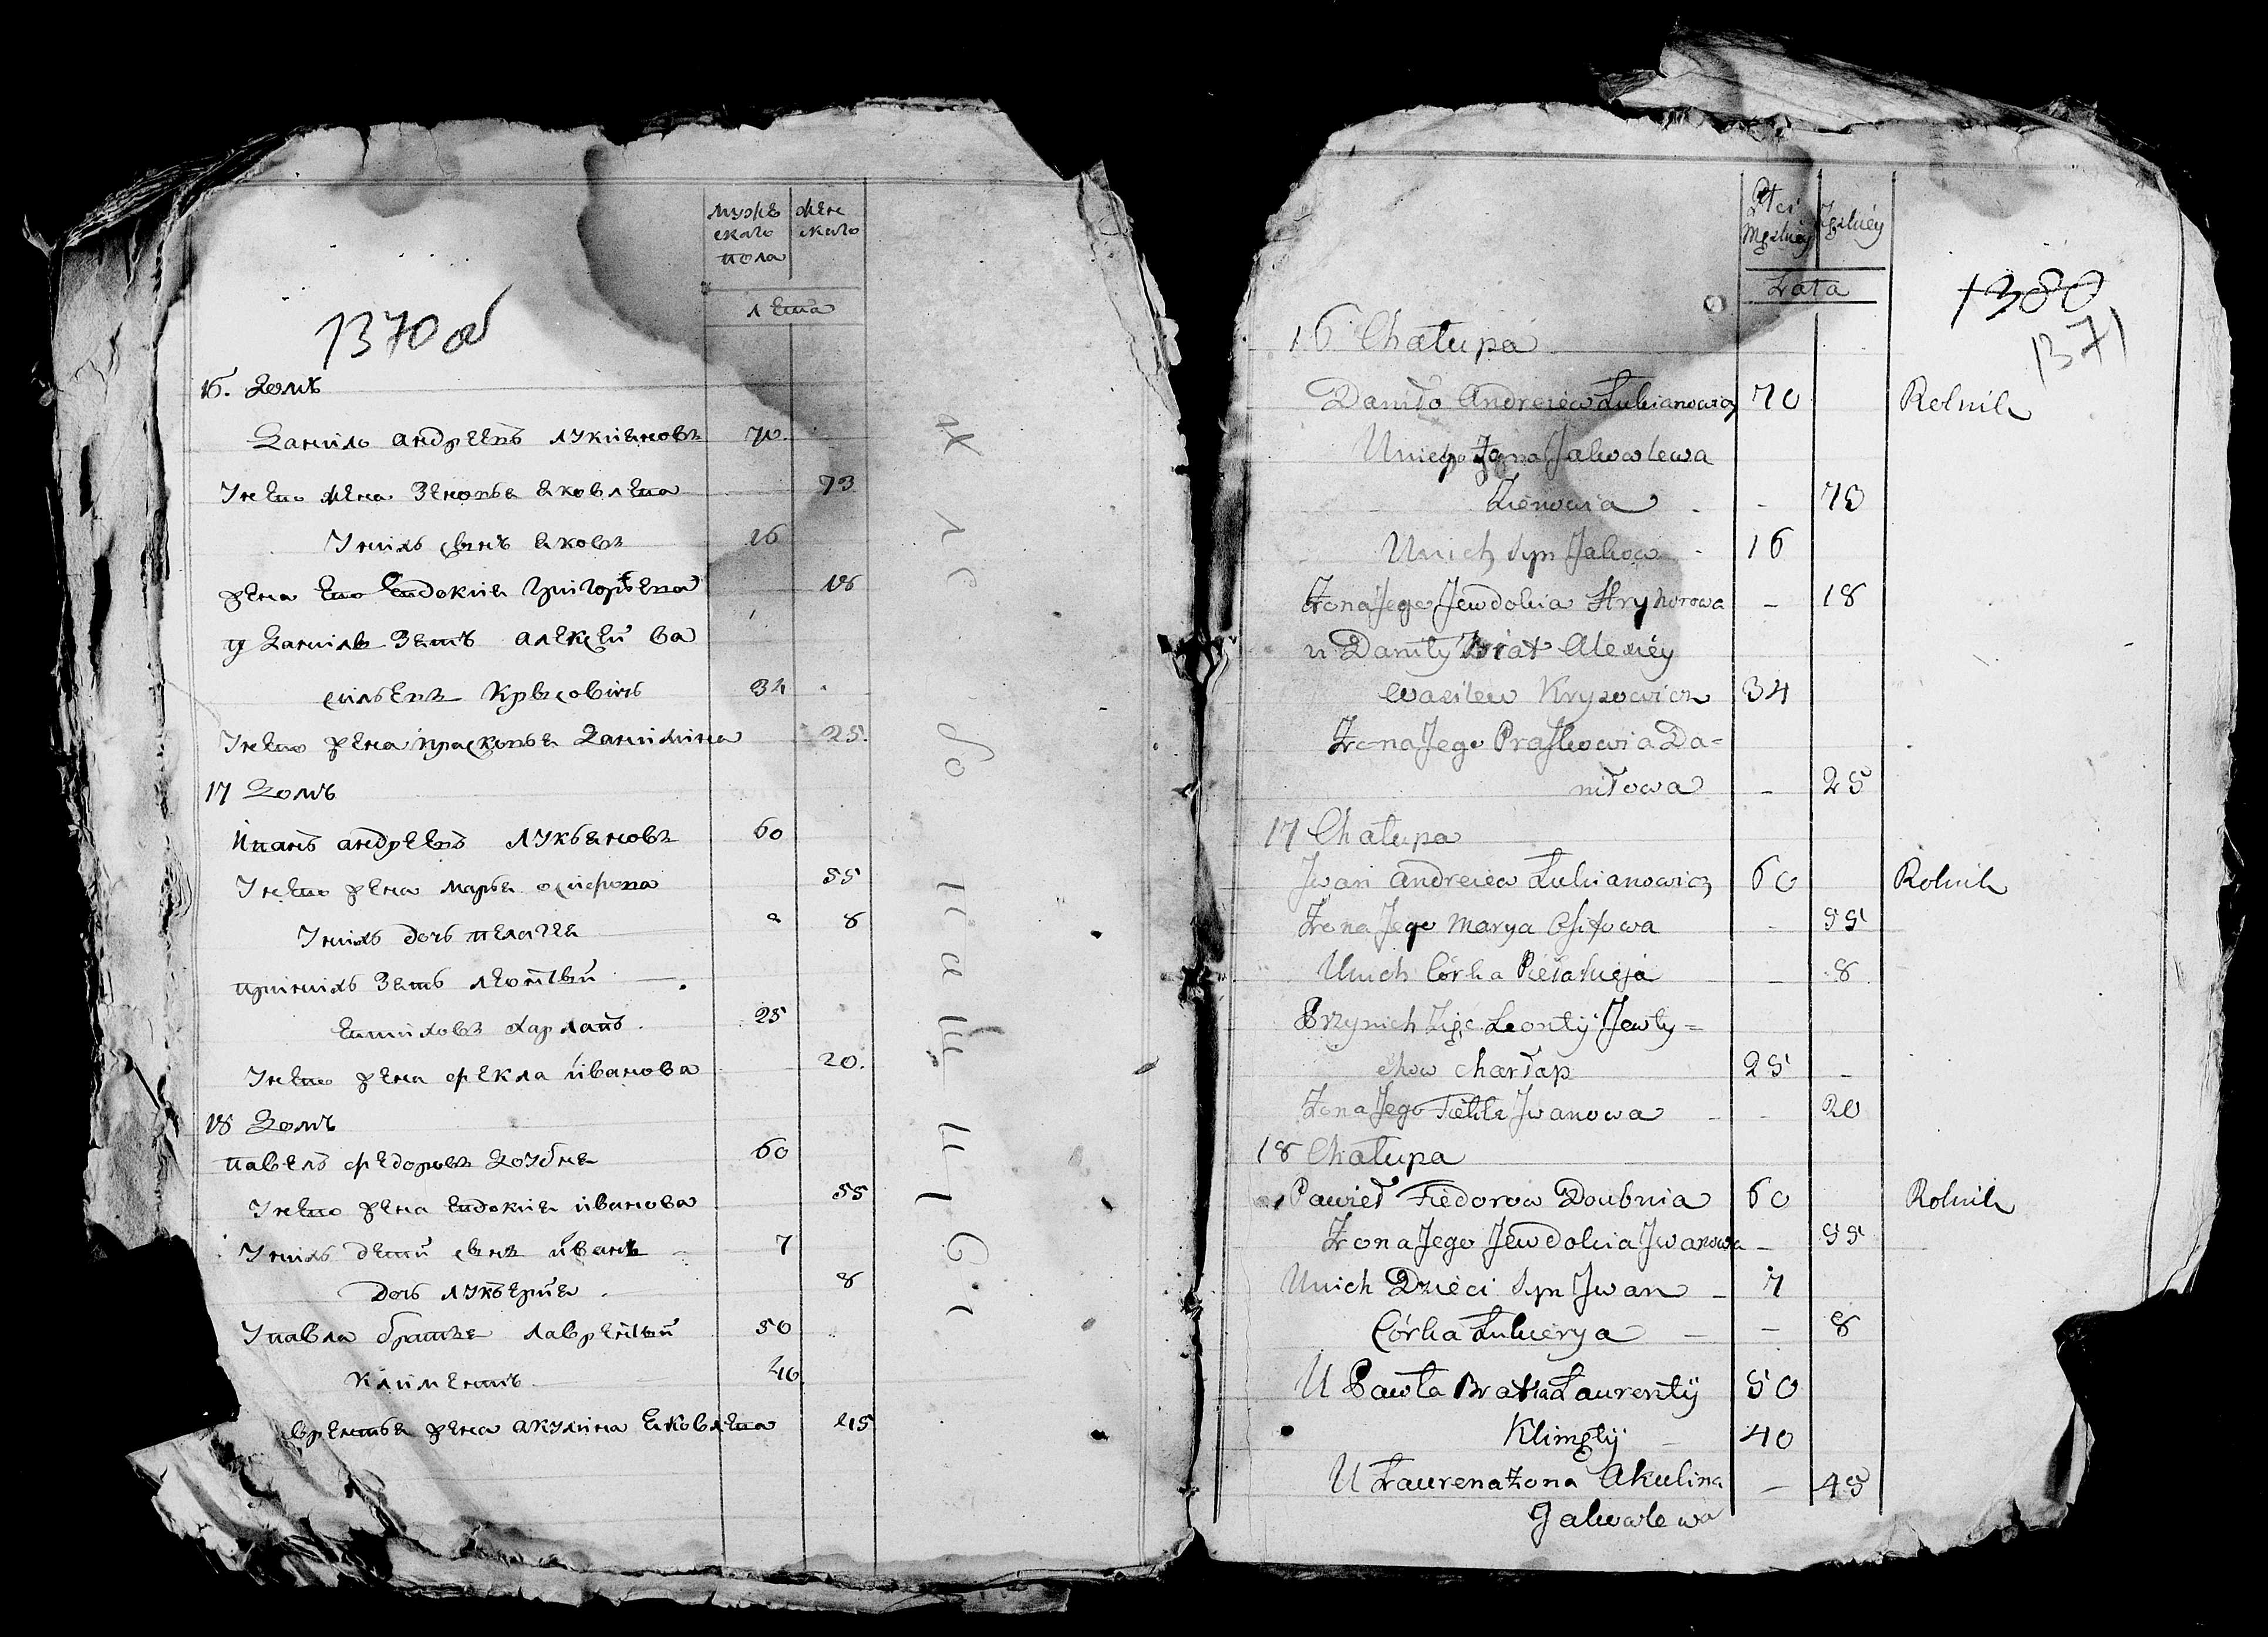 мужескаго пола
женскаго
лета
1370 об
16. Домъ
Данило андреевъ лукиановъ 70.
У него жена Зеновья яковлева 73
У нихъ сынъ яковъ 16
жена его Евдокия григорьева 18
у Данилы Зять алексей ва
сильевъ Крысовичъ 34
У него жена прасковья Данилина 25.
17 Домъ
Иванъ андреевъ лукьяновъ 60
У него жена марья осипова 55
У нихъ дочь пелагея 8
при нихъ Зять леонтий
Евтиховъ харлапъ. 25
У него жена фекла иванова 20.
18 Домъ
павелъ федоровъ доубня 60
У него жена Евдокия иванова 55
У нихъ дети сынъ иванъ 7
дочь лукерия. 8
У павла братья лаврентий 50
Климентъ 40
врентья жена акулина яковлева 45
Płci Męzkiéy
Żęzkiéy
Lata
1380
1371
16 Chałupa
Daniło Andreiew Łukianowicz 70 Rolnik
U niego Żona Jakowlewa
Zienowia - 73
U nich Syn Jakow - 16
Żona Jego Jewdokia Hryhorowa - 18
u Daniły Ziat Alexiéy
Wasilew Krysowicz 34
Żona Jego Praskowia Da=
niłowa - 25
17 Chałupa
Jwan Andreiew Łukianowicz 60 Rolnik
Żona Jego Marya Osifowa - 55
U nich Córka Piełahieja - 8
Przy nich Zięć Leontÿ Jewty=
chow Charłap 25 -
Żona Jego Fiekła Jwanowa - 20
18 Chałupa
Pawieł Fiedorow Doubnia 60 Rolnik
Żona Jego Jewdokia Jwanowa - 55
U nich Dzieci Syn Jwan - 7
Córka Łukierya - - 8
U Pawła Bratia Laurentÿ 50
Klimętÿ 40
U Laurena Żona Akulina - 45
Jakowlewa